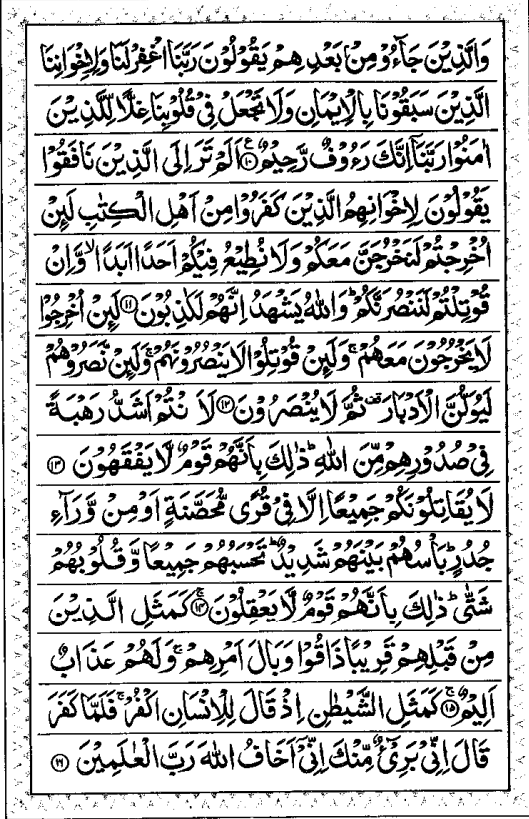 وَالَّذِيْنَ جَآءُوْ مِنْۢ بَعْدِهِمْ يَقُوْلُوْنَ رَبَّنَا اغْفِرْ لَنَا وَلِاِخْوَانِنَا
الَّذِيْنَ سَبَقُوْنَا بِالْاِيْمَانِ وَلَا تَجْعَلْ فِيْ قُلُوْبِنَا غِلًّا لِّلَّذِيْنَ
اٰمَنُوْا رَبَّنَآ اِنَّكَ رَءُوْفٌ رَّحِيْمٌ ۝۱۰ اَلَمْ تَرَ اِلَى الَّذِيْنَ نَافَقُوْا
يَقُوْلُوْنَ لِاِخْوَانِهِمُ الَّذِيْنَ كَفَرُوْا مِنْ اَهْلِ الْكِتٰبِ لَئِنْ
اُخْرِجْتُمْ لَنَخْرُجَنَّ مَعَكُمْ وَلَا نُطِيْعُ فِيْكُمْ اَحَدًا اَبَدًا ۙ وَّاِنْ
قُوْتِلْتُمْ لَنَنْصُرَنَّكُمْ ؕ وَاللّٰهُ يَشْهَدُ اِنَّهُمْ لَكٰذِبُوْنَ ۝۱۱ لَئِنْ اُخْرِجُوْا
لَا يَخْرُجُوْنَ مَعَهُمْ ۚ وَلَئِنْ قُوْتِلُوْا لَا يَنْصُرُوْنَهُمْ ۚ وَلَئِنْ نَّصَرُوْهُمْ
لَيُوَلُّنَّ الْاَدْبَارَ ۟ ثُمَّ لَا يُنْصَرُوْنَ ۝۱۲ لَاَ نْتُمْ اَشَدُّ رَهْبَةً
فِيْ صُدُوْرِهِمْ مِّنَ اللّٰهِ ؕ ذٰلِكَ بِاَنَّهُمْ قَوْمٌ لَّا يَفْقَهُوْنَ ۝۱۳
لَا يُقَاتِلُوْنَكُمْ جَمِيْعًا اِلَّا فِيْ قُرًى مُّحَصَّنَةٍ اَوْ مِنْ وَّرَآءِ
جُدُرٍ ؕ بَاْسُهُمْ بَيْنَهُمْ شَدِيْدٌ ؕ تَحْسَبُهُمْ جَمِيْعًا وَّقُلُوْبُهُمْ
شَتّٰى ؕ ذٰلِكَ بِاَنَّهُمْ قَوْمٌ لَّا يَعْقِلُوْنَ ۝۱۴ كَمَثَلِ الَّذِيْنَ
مِنْ قَبْلِهِمْ قَرِيْبًا ذَاقُوْا وَبَالَ اَمْرِهِمْ ۚ وَلَهُمْ عَذَابٌ
اَلِيْمٌ ۝۱۵ كَمَثَلِ الشَّيْطٰنِ اِذْ قَالَ لِلْاِنْسَانِ اكْفُرْ ۚ فَلَمَّا كَفَرَ
قَالَ اِنِّيْ بَرِيْٓءٌ مِّنْكَ اِنِّيْٓ اَخَافُ اللّٰهَ رَبَّ الْعٰلَمِيْنَ ۝۱۶